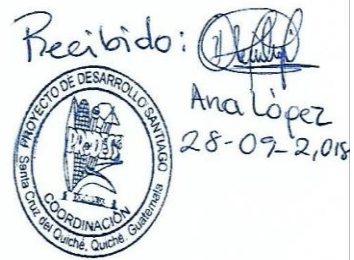 Recibido:
Ana López
28-09-2,018
PROYECTO DE DESARROLLO SANTIAGO
COORDINACIÓN
Santa Cruz del Quiché, Quiché, Guatemala